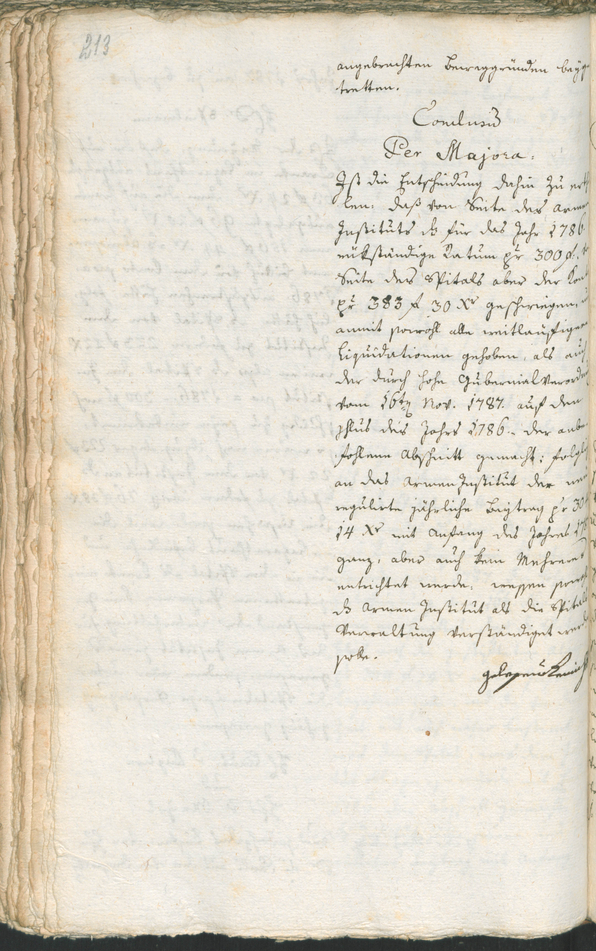 213
angebrachten Beweggründen bey
tretten.
Conclusũ
Per Majora.
Ist die Entscheidung dahin zu
len, daß von Seite des Armen
Instituts das für das Jahr 1786
rükständige Ratum pr 300 f.
Seite des Spitals aber der
pr 383 f 30 Xr geschwiegen,
anmit sowohl alle weitlaufigen
Liquidationen gehoben, als auch
der durch hohe Gubernialverord
vom 16ten Nov. 1787 auf den
schluß des Jahrs 1786 der anbe
fohlene Abschnitt gemacht; folgl
an das Armen Institut der
regulirte jährliche Beytrag pr 30
14 Xr mit Anfang des Jahres
ganz, aber auch kein Mehreres
entrichtet werde, wessen sowohl
das Armen Institut als die Spitals
Verwaltung verständiget
solle.